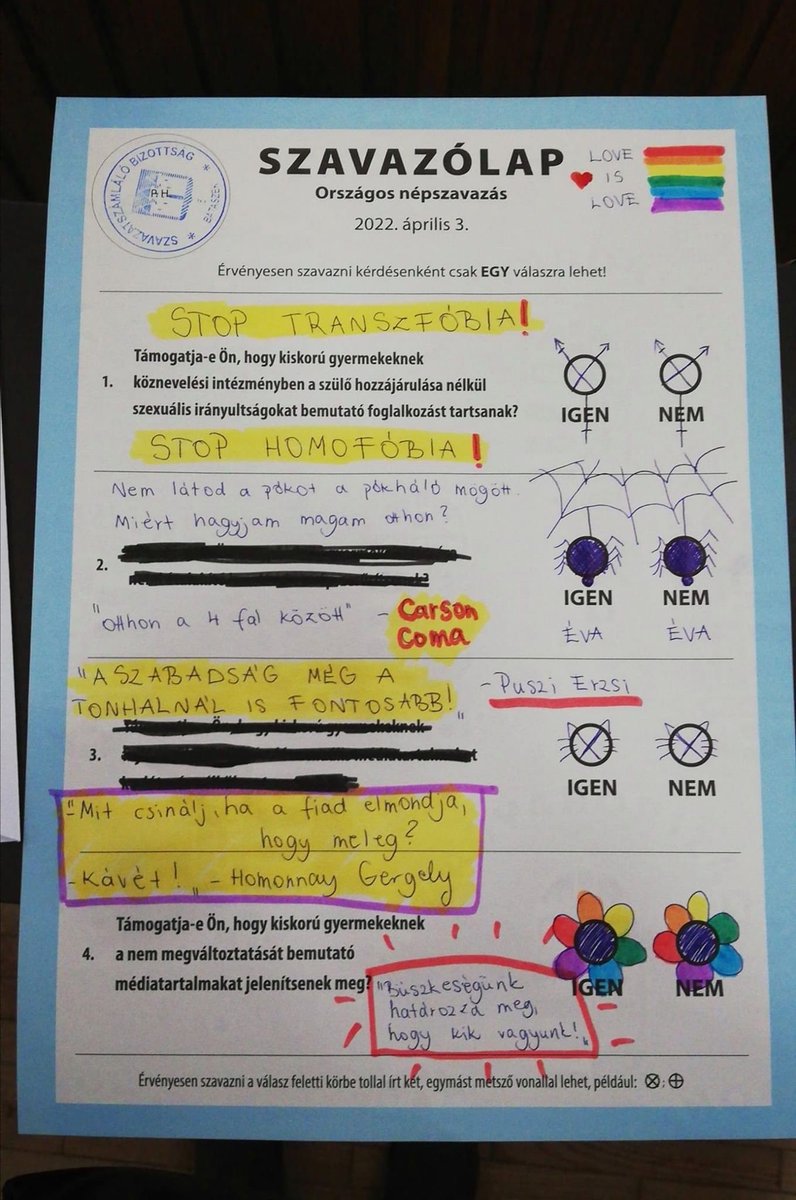 SZAVAZATSZÁMLÁLÓ BIZOTTSÁG
SZAVAZÓLAP
LOVE
IS
LOVE
Országos népszavazás
2022. április 3.
Érvényesen szavazni kérdésenként csak EGY válaszra lehet!
STOP TRANSZFÓBIA!
Támogatja-e Ön, hogy kiskorú gyermekeknek
1. köznevelési intézményben a szülő hozzájárulása nélkül
szexuális irányultságokat bemutató foglalkozást tartsanak?
IGEN NEM
STOP HOMOFÓBIA!
Nem látod a pókot a pókháló mögött.
Miért hagyjam magam otthon?
2.
IGEN NEM
"otthon a 4 fal között" - Carson
Coma
ÉVA ÉVA
"A SZABADSÁG MÉG A
TONHALNÁL IS FONTOSABB!" - Puszi Erzsi
3.
IGEN NEM
"- Mit csinálj, ha a fiad elmondja,
hogy meleg?
- Kávét!" - Homonnay Gergely
Támogatja-e Ön, hogy kiskorú gyermekeknek
4. a nem megváltoztatását bemutató
médiatartalmakat jelenítsenek meg?
IGEN NEM
"Büszkeségünk
határozza meg,
hogy kik vagyunk!"
Érvényesen szavazni a válasz feletti körbe tollal írt két, egymást metsző vonallal lehet, például: ⊗; ⊕